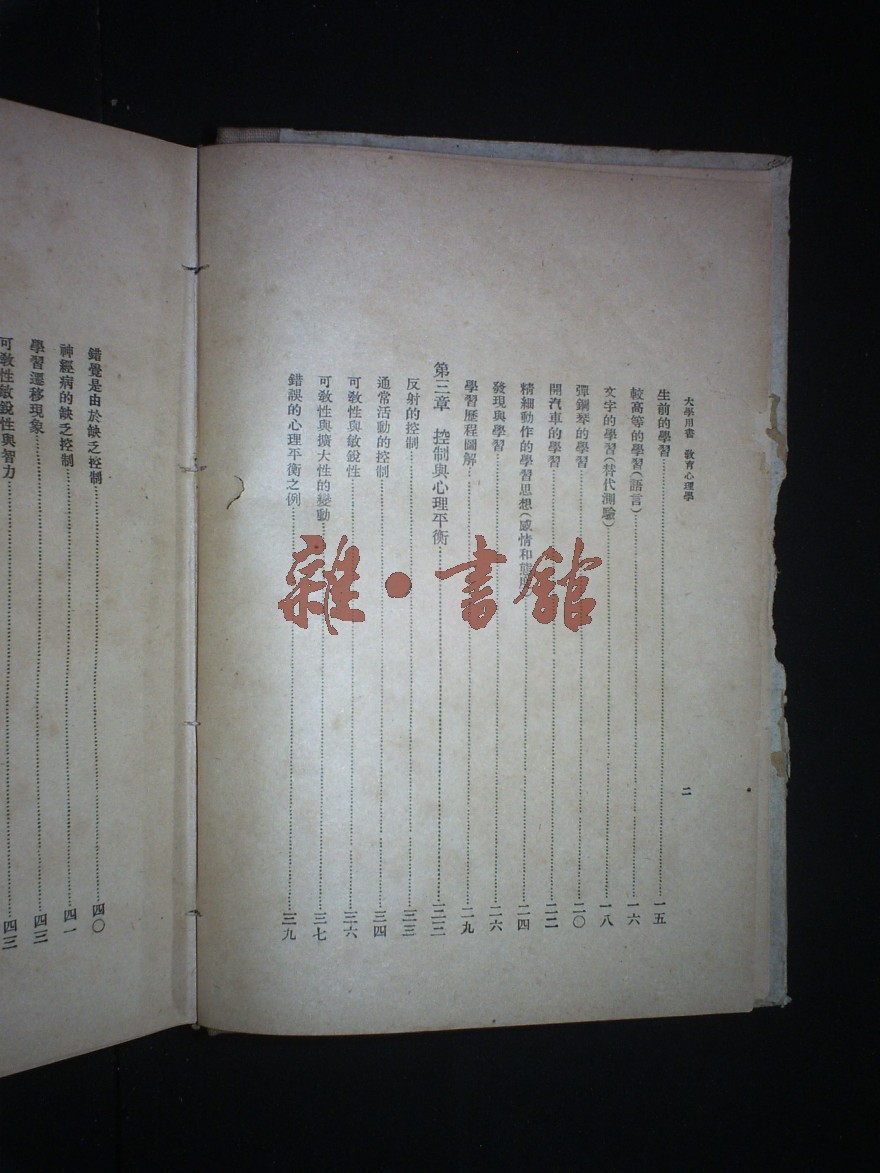 大學用書　敎育心理學
二
生前的學習……一五
較高等的學習(語言)……一六
文字的學習(替代測驗)……一八
彈鋼琴的學習……二〇
開汽車的學習……二二
精細動作的學習思想(感情和態度……二四
發現與學習……二六
學習歷程圖解……二九
第三章　控制與心理平衡……三三
反射的控制……三三
通常活動的控制……三四
可敎性與敏銳性……三六
可敎性與擴大性的變動……三七
錯誤的心理平衡之例……三九
錯覺是由於缺乏控制……四〇
神經病的缺乏控制……四一
學習遷移現象……四三
可敎性敏銳性與智力……四三
雜·書館